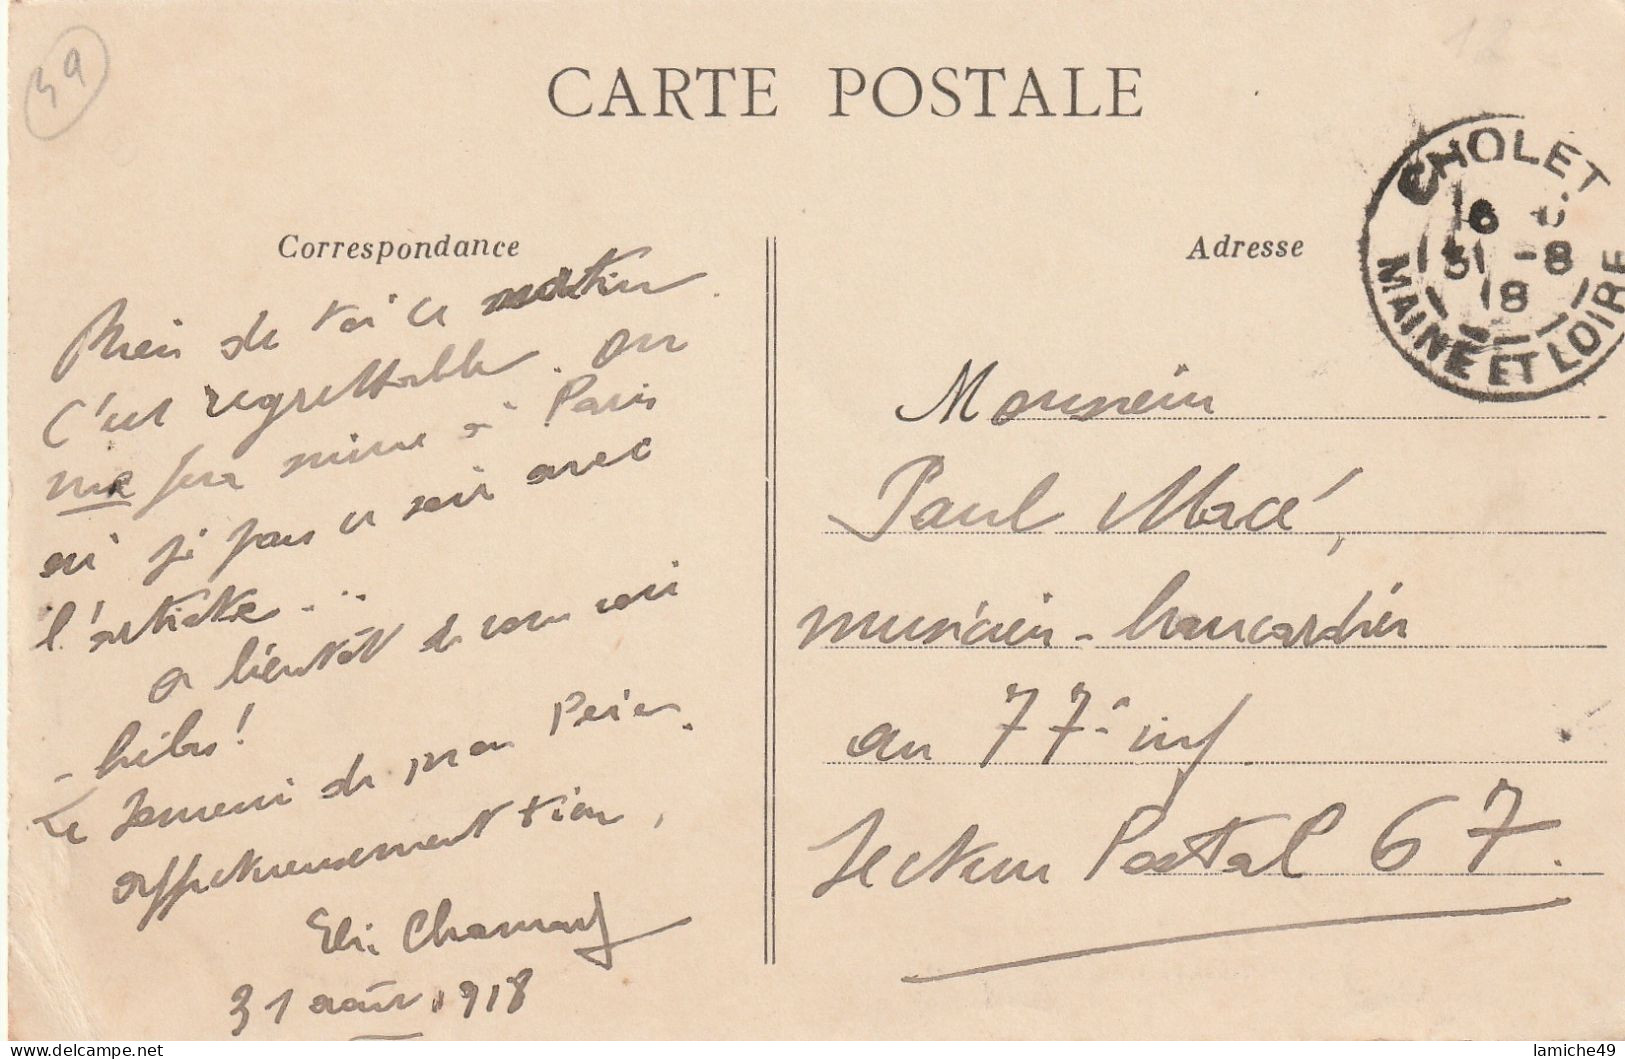 49
CARTE POSTALE
CHOLET
16
31 -8
18
MAINE ET LOIRE
Correspondance
Rien de toi ce matin.
C'est regrettable. On
me fera suivre à Paris
où je pars ce soir avec
l'artiste...
A bientôt de vous voir
Le Souvenir de mon
affectueusement tien,
Elie
31 août 1918
Adresse
Monsieur
Paul Macé,
musicien-brancardier
au 77e inf
Secteur Postal 67.
delcampe.net
lamiche49